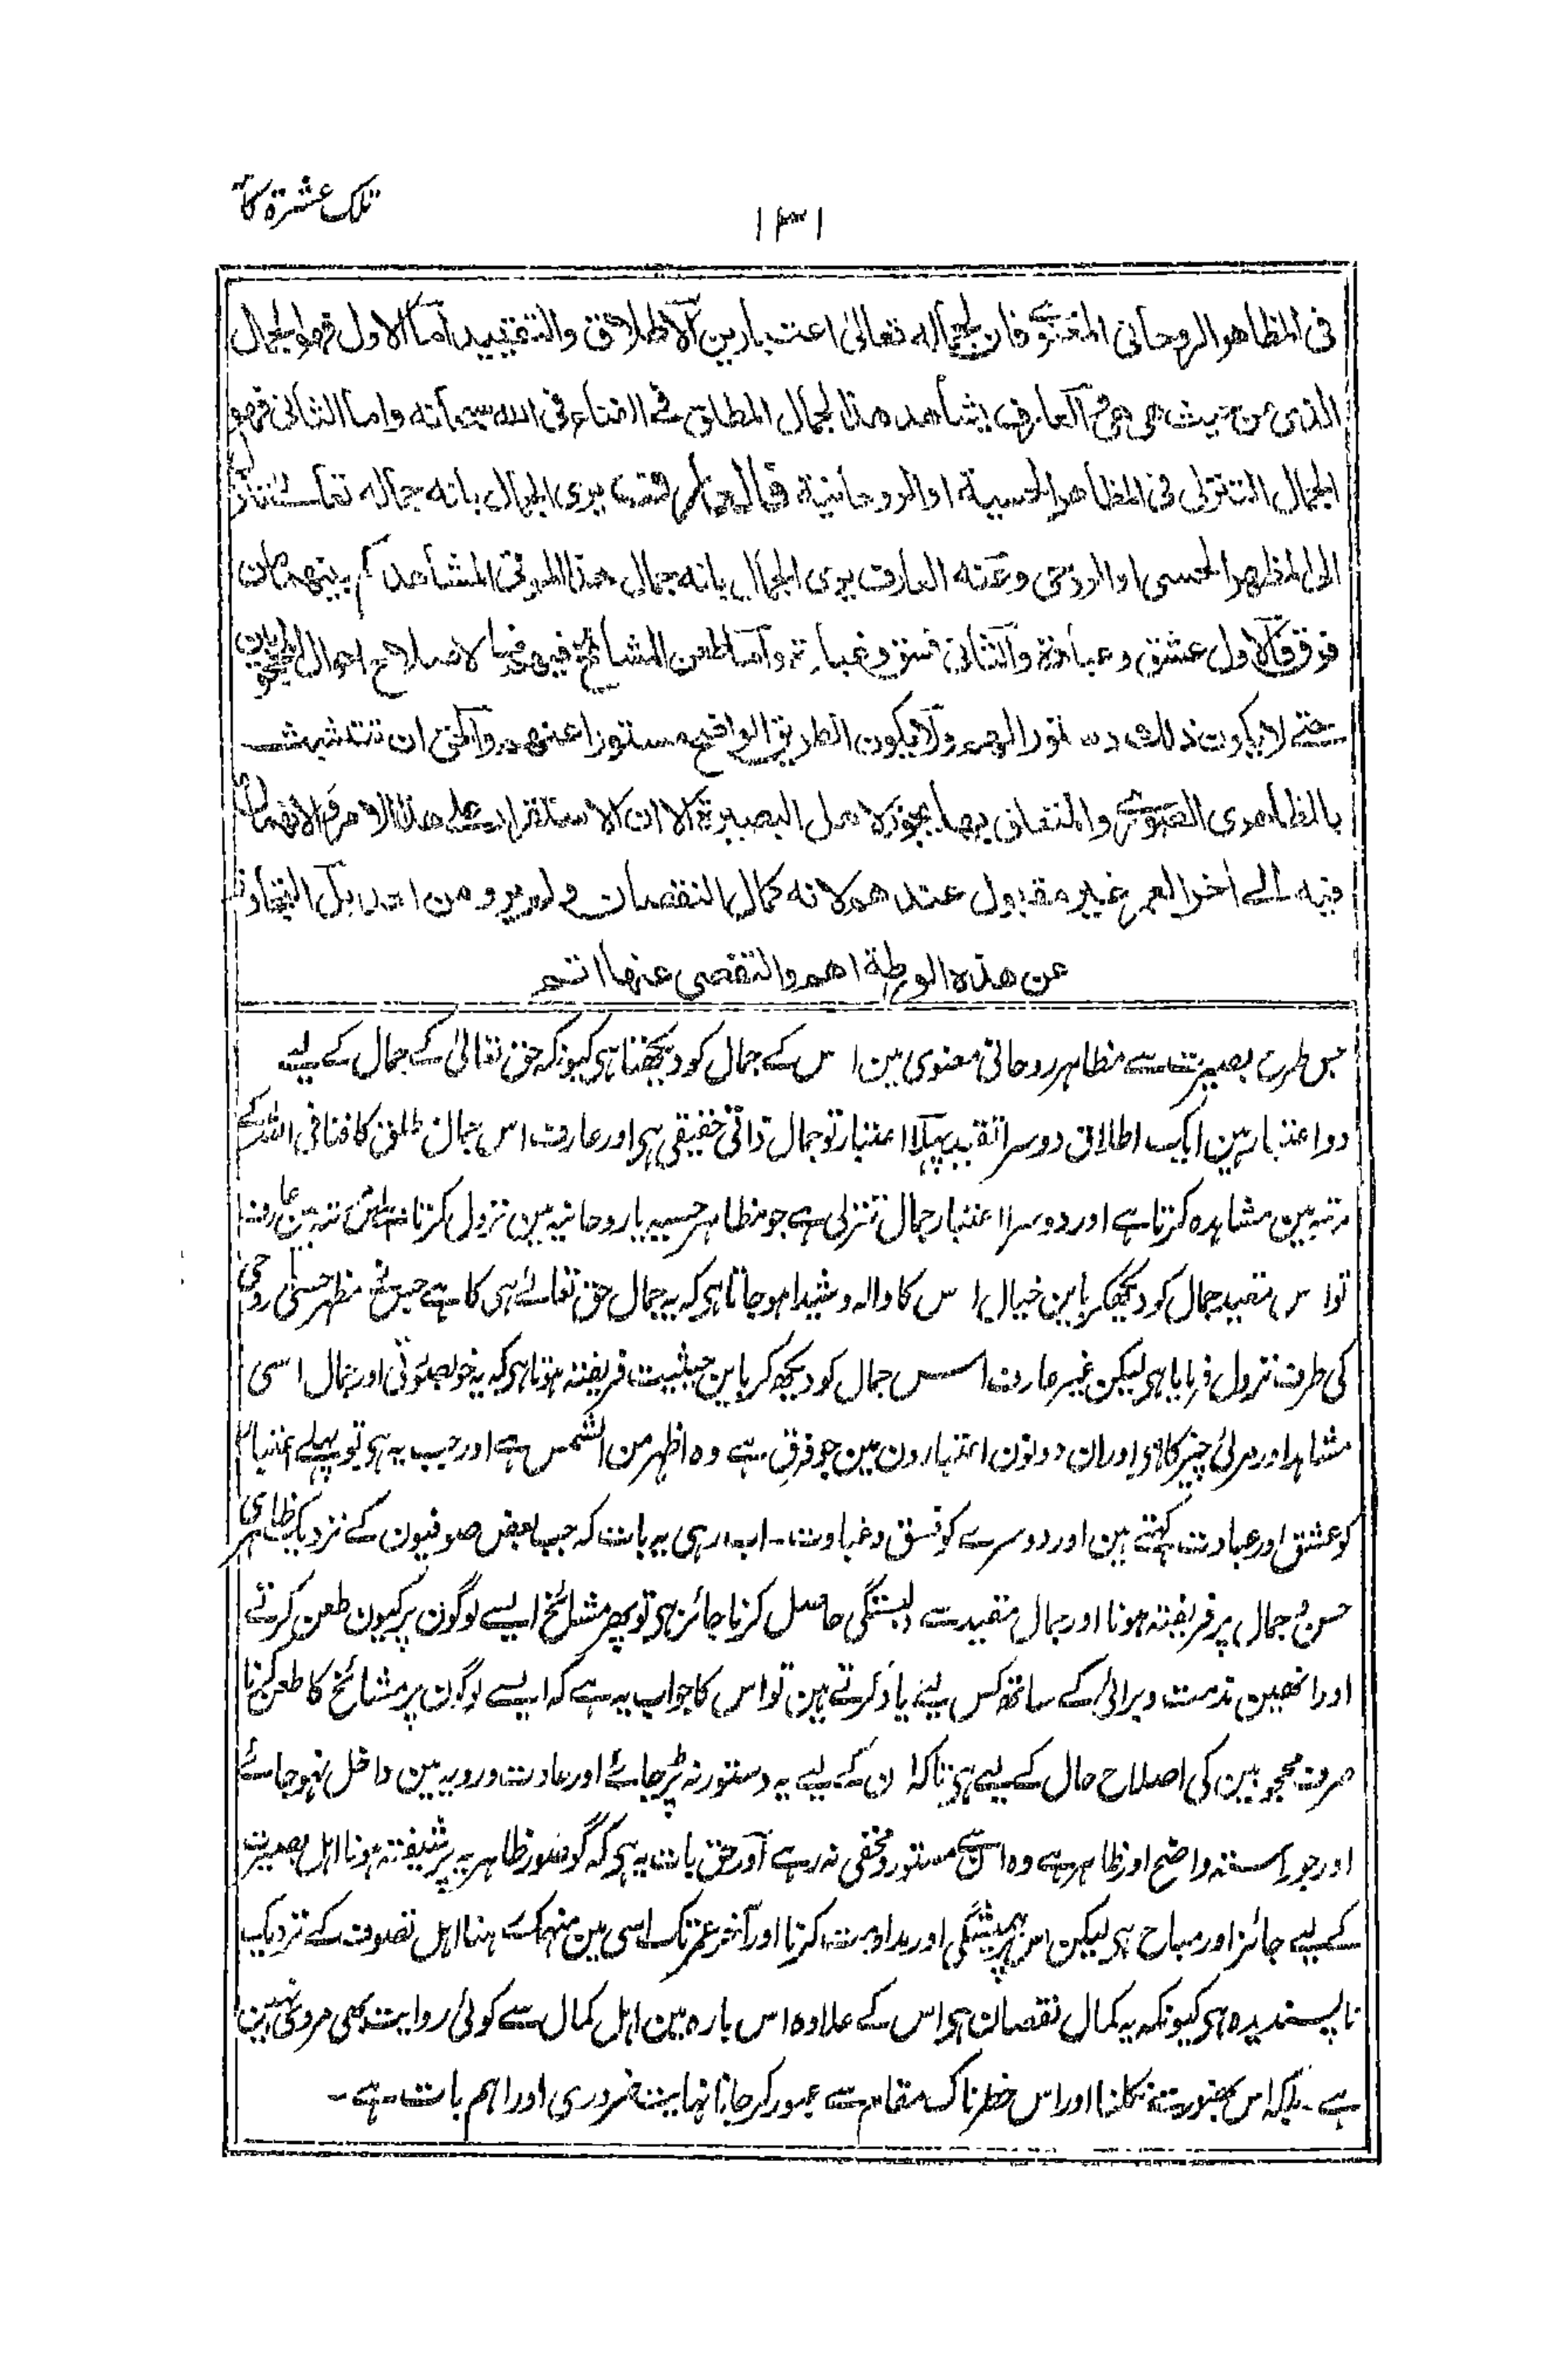 تلک عشرة کا
۱۳۱
فی المظاهر الروحانی المعنوی فان لجماله تعالیٰ اعتبارین الاطلاق والتقیید اما الاول فهو الجمال
الذی من حیث هی هی العارف یشاهد هذا الجمال المطلق فی الفناء فی الله سبحانه واما الثانی فهو
الجمال التنزلی فی المظاهر الحسیة او الروحانیة فالعارف یری الجمال بانه جماله تعالے تنزل
الی المظهر الحسی او الروحی وغیر العارف یری الجمال بانه جمال هذا المرئی المشاهد کم بینهما من
فرق فالاول عشق وعبادة والثانی فسق وغباوة واما طعن المشائخ فیهم فهو لاصلاح احوال المحجوبین
حتے لا یکون ذلک دستورا لهم ولا یکون الطریق الواضح مستورا عنهم والحق ان تتشبث
بالظاهری الصوری والمتعلق بها یجوز لاهل البصیرة الا ان الاستقرار علے هذا الامر والانهماک
فیه الے اخر العمر غیر مقبول عندهم لانه کمال النقصان ولم یرو من احد بل التجاوز
عن هذه الورطة اهم والتقصی عنها اتم
جس طرح بصیرت سے مظاہر روحانی معنوی مین اس کے جمال کو دیکھتا ہی کیونکہ حق تعالیٰ کے جمال کے لیے
دو اعتبار ہین ایک اطلاق دوسرا تقیید پہلا اعتبار تو جمال ذاتی حقیقی ہی اور عارف اس جمال مطلق کا فنا فی اللہ کے
مرتبہ مین مشاہدہ کرتا ہے اور دوسرا اعتبار جمال تنزلی ہے جو مظاہر حسیہ یا روحانیہ مین نزول کرتا ہے اس مرتبہ مین عارف
تو اس مقید جمال کو دیکھکر باین خیال اس کا والہ و شیدا ہو جاتا ہی کہ یہ جمال حق تعالےٰ ہی کا ہے جس نے مظہر حسی یا روحی
کی طرف نزول فرمایا ہی لیکن غیر عارف اس جمال کو دیکھ کر باین حیثیت فریفتہ ہوتا ہی کہ یہ خوبصورتی اور جمال اسی
مشاہد اور مرئی چیز کا ہی اور ان دونون اعتبارون مین جو فرق ہے وہ اظہر من الشمس ہے اور جب یہ ہی تو پہلے اعتبار
کو عشق اور عبادت کہتے ہین اور دوسرے کو فسق و غباوت۔ اب رہی یہ بات کہ جب بعض صوفیون کے نزدیک ظاہری
حسن و جمال پر فریفتہ ہونا اور جمال مقید سے دلبستگی حاصل کرنا جائز ہی تو پھر مشائخ ایسے لوگون پر کیون طعن کرتے
اور انھین مذمت و برائی کے ساتھ کس لیے یاد کرتے ہین تو اس کا جواب یہ ہے کہ ایسے لوگون پر مشائخ کا طعن کرنا
صرف محجوبین کی اصلاح حال کے لیے ہی تاکہ ان کے لیے یہ دستور نہ پڑ جائے اور عادت و رویہ مین داخل نہو جائے
اور جو راستہ واضح اور ظاہر ہے وہ اس سے مستور و مخفی نہ رہے اور حق بات یہ ہی کہ گو صور ظاہریہ پر شیفتہ ہونا اہل بصیرت
کے لیے جائز اور مباح ہی لیکن اس پر ہمیشگی اور مداومت کرنا اور آخر عمر تک اسی مین منہمک رہنا اہل تصوف کے نزدیک
ناپسندیدہ ہی کیونکہ یہ کمال نقصان ہی اس کے علاوہ اس بارہ مین اہل کمال سے کوئی روایت بھی مروی نہین
ہے۔ بلکہ اس بھنور سے نکلنا اور اس خطرناک مقام سے عبور کر جانا نہایت ضروری اور اہم بات ہے۔